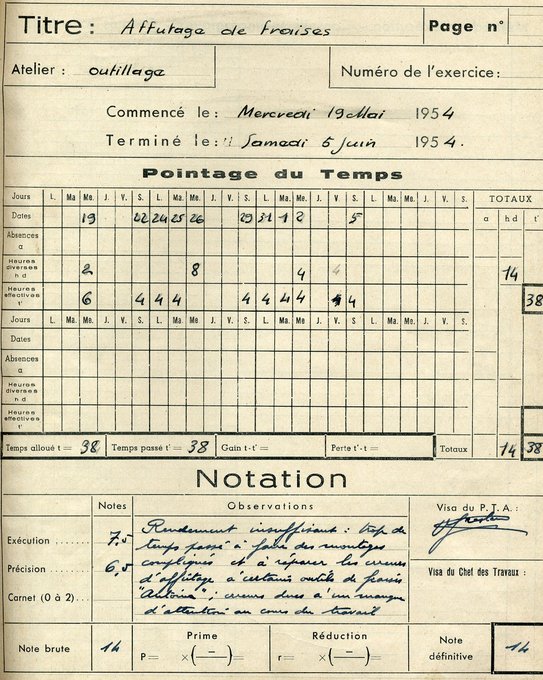 Titre : Affutage de fraises
Page n°
Atelier : outillage
Numéro de l'exercice :
Commencé le : Mercredi 19 Mai 1954
Terminé le : Samedi 5 Juin 1954.
Pointage du Temps
Jours L. Ma Me. J. V. S. L. Ma. Me. J. V. S. L. Ma. Me. J. V. S. L. Ma. Me. J. V. S. TOTAUX
Dates 19 22 24 25 26 29 31 1 2 5 a hd t'
Absences a
Heures diverses hd 2 8 4 4 14
Heures effectives t' 6 4 4 4 4 4 4 4 4 38
Jours L. Ma. Me. J. V. S. L. Ma. Me. J. V. S. L. Ma. Me. J. V. S. L. Ma. Me. J. V. S.
Dates
Absences a
Heures diverses hd
Heures effectives t'
Temps alloué t = 38 Temps passé t' = 38 Gain t-t' = Perte t'-t = Totaux 14 38
Notation
Notes Observations Visa du P.T.A. :
Exécution ...... 7,5
Précision ...... 6,5
Carnet (0 à 2) ....
Rendement insuffisant : trop de
temps passé à faire des montages
compliqués et à réparer les erreurs
d'affûtage à certains outils de
"Antoine" ; erreurs dues à un manque
d'attention au cours du travail
Visa du Chef des Travaux :
Note brute 14
Prime
P= ×(–)=
Réduction
r= ×(–)=
Note définitive 14